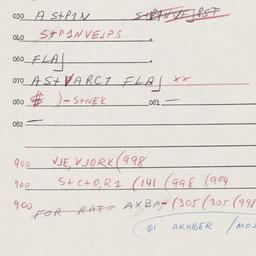 030 A S+P1N
060 S+P1NVEJPS
060 FLAJ
070 AS+VARC1 FLAJ xx
080 $ )-S+NEK 081 —
082 —
900 VJE, VJORK (998
900 S+C+O, R1 (141 (998 (904
900 FOR RAT= AXBA,- (305 (305 (998
Q1 AKHBER /MO